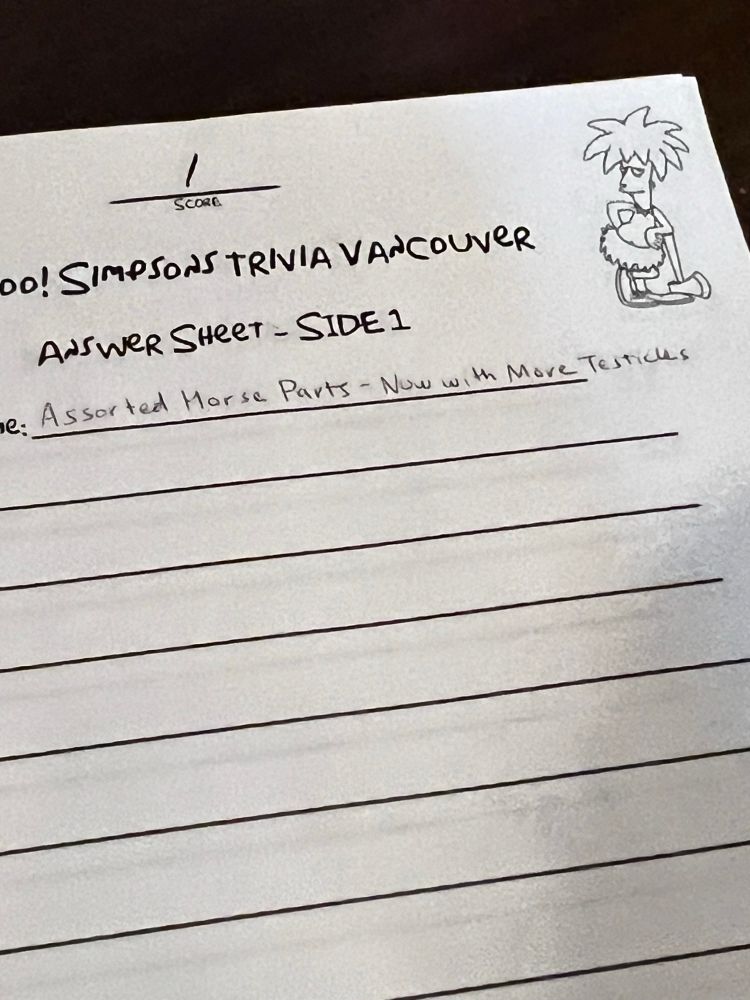 /
SCORE
OO! SIMPSONS TRIVIA VANCOUVER
ANSWER SHEET - SIDE 1
e: Assorted Horse Parts - Now with More Testicles